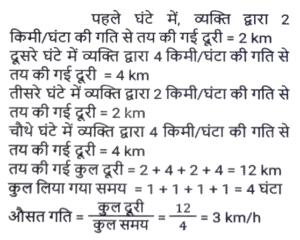 पहले घंटे में, व्यक्ति द्वारा 2
किमी/घंटा की गति से तय की गई दूरी = 2 km
दूसरे घंटे में व्यक्ति द्वारा 4 किमी/घंटा की गति से
तय की गई दूरी = 4 km
तीसरे घंटे में व्यक्ति द्वारा 2 किमी/घंटा की गति से
तय की गई दूरी = 2 km
चौथे घंटे में व्यक्ति द्वारा 4 किमी/घंटा की गति से
तय की गई दूरी = 4 km
तय की गई कुल दूरी = 2 + 4 + 2 + 4 = 12 km
कुल लिया गया समय = 1 + 1 + 1 + 1 = 4 घंटा
औसत गति = कुल दूरी/कुल समय = 12/4 = 3 km/h